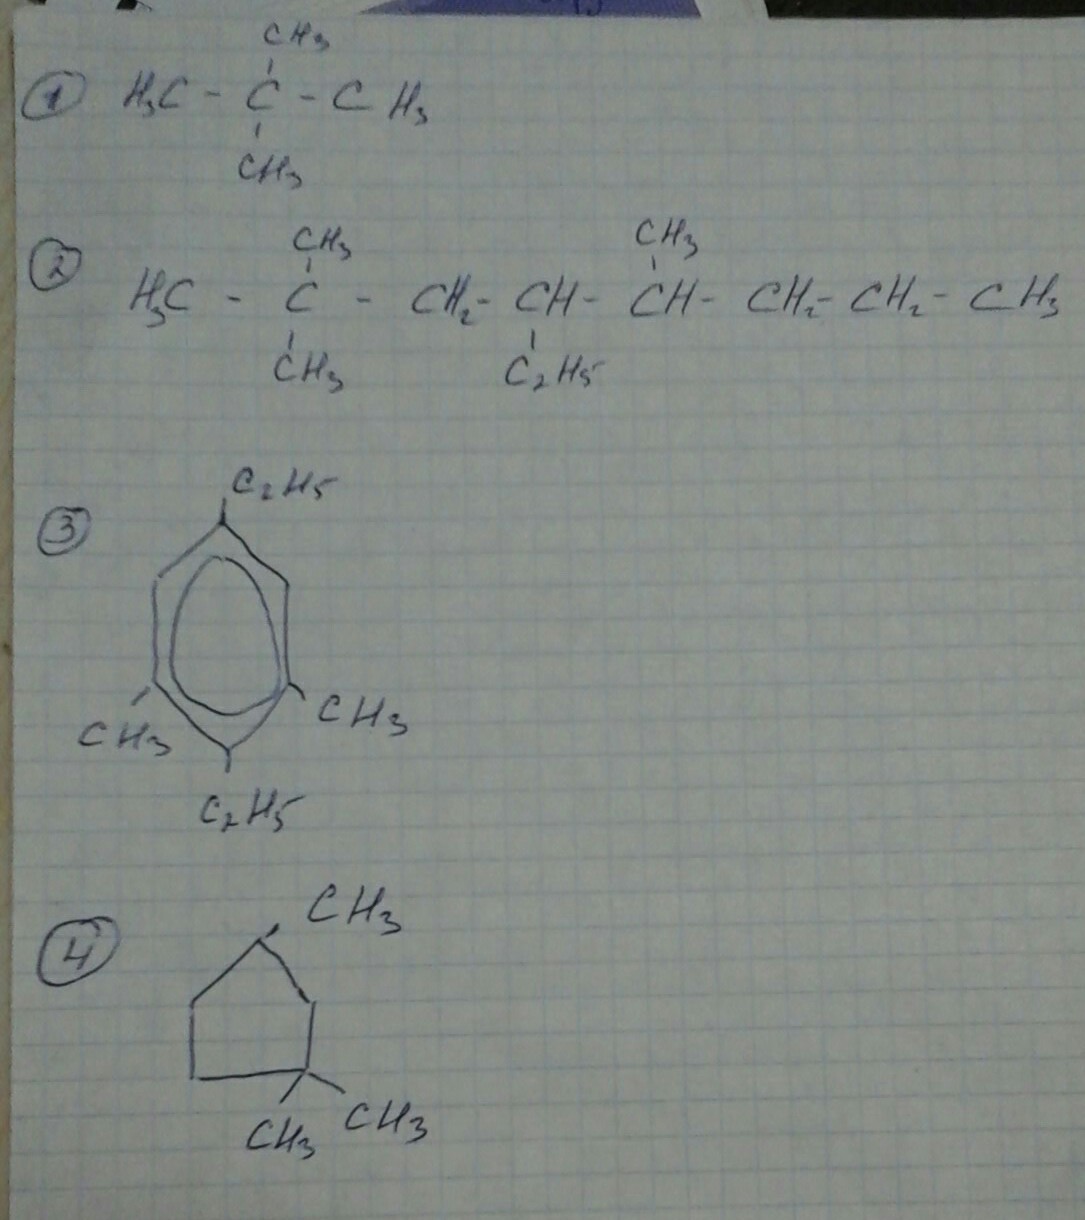 CH₃
① H₃C - C - CH₃
CH₃
CH₃ CH₃
② H₃C - C - CH₂ - CH - CH - CH₂ - CH₂ - CH₃
CH₃ C₂H₅
C₂H₅
③
CH₃ CH₃
C₂H₅
CH₃
④
CH₃ CH₃